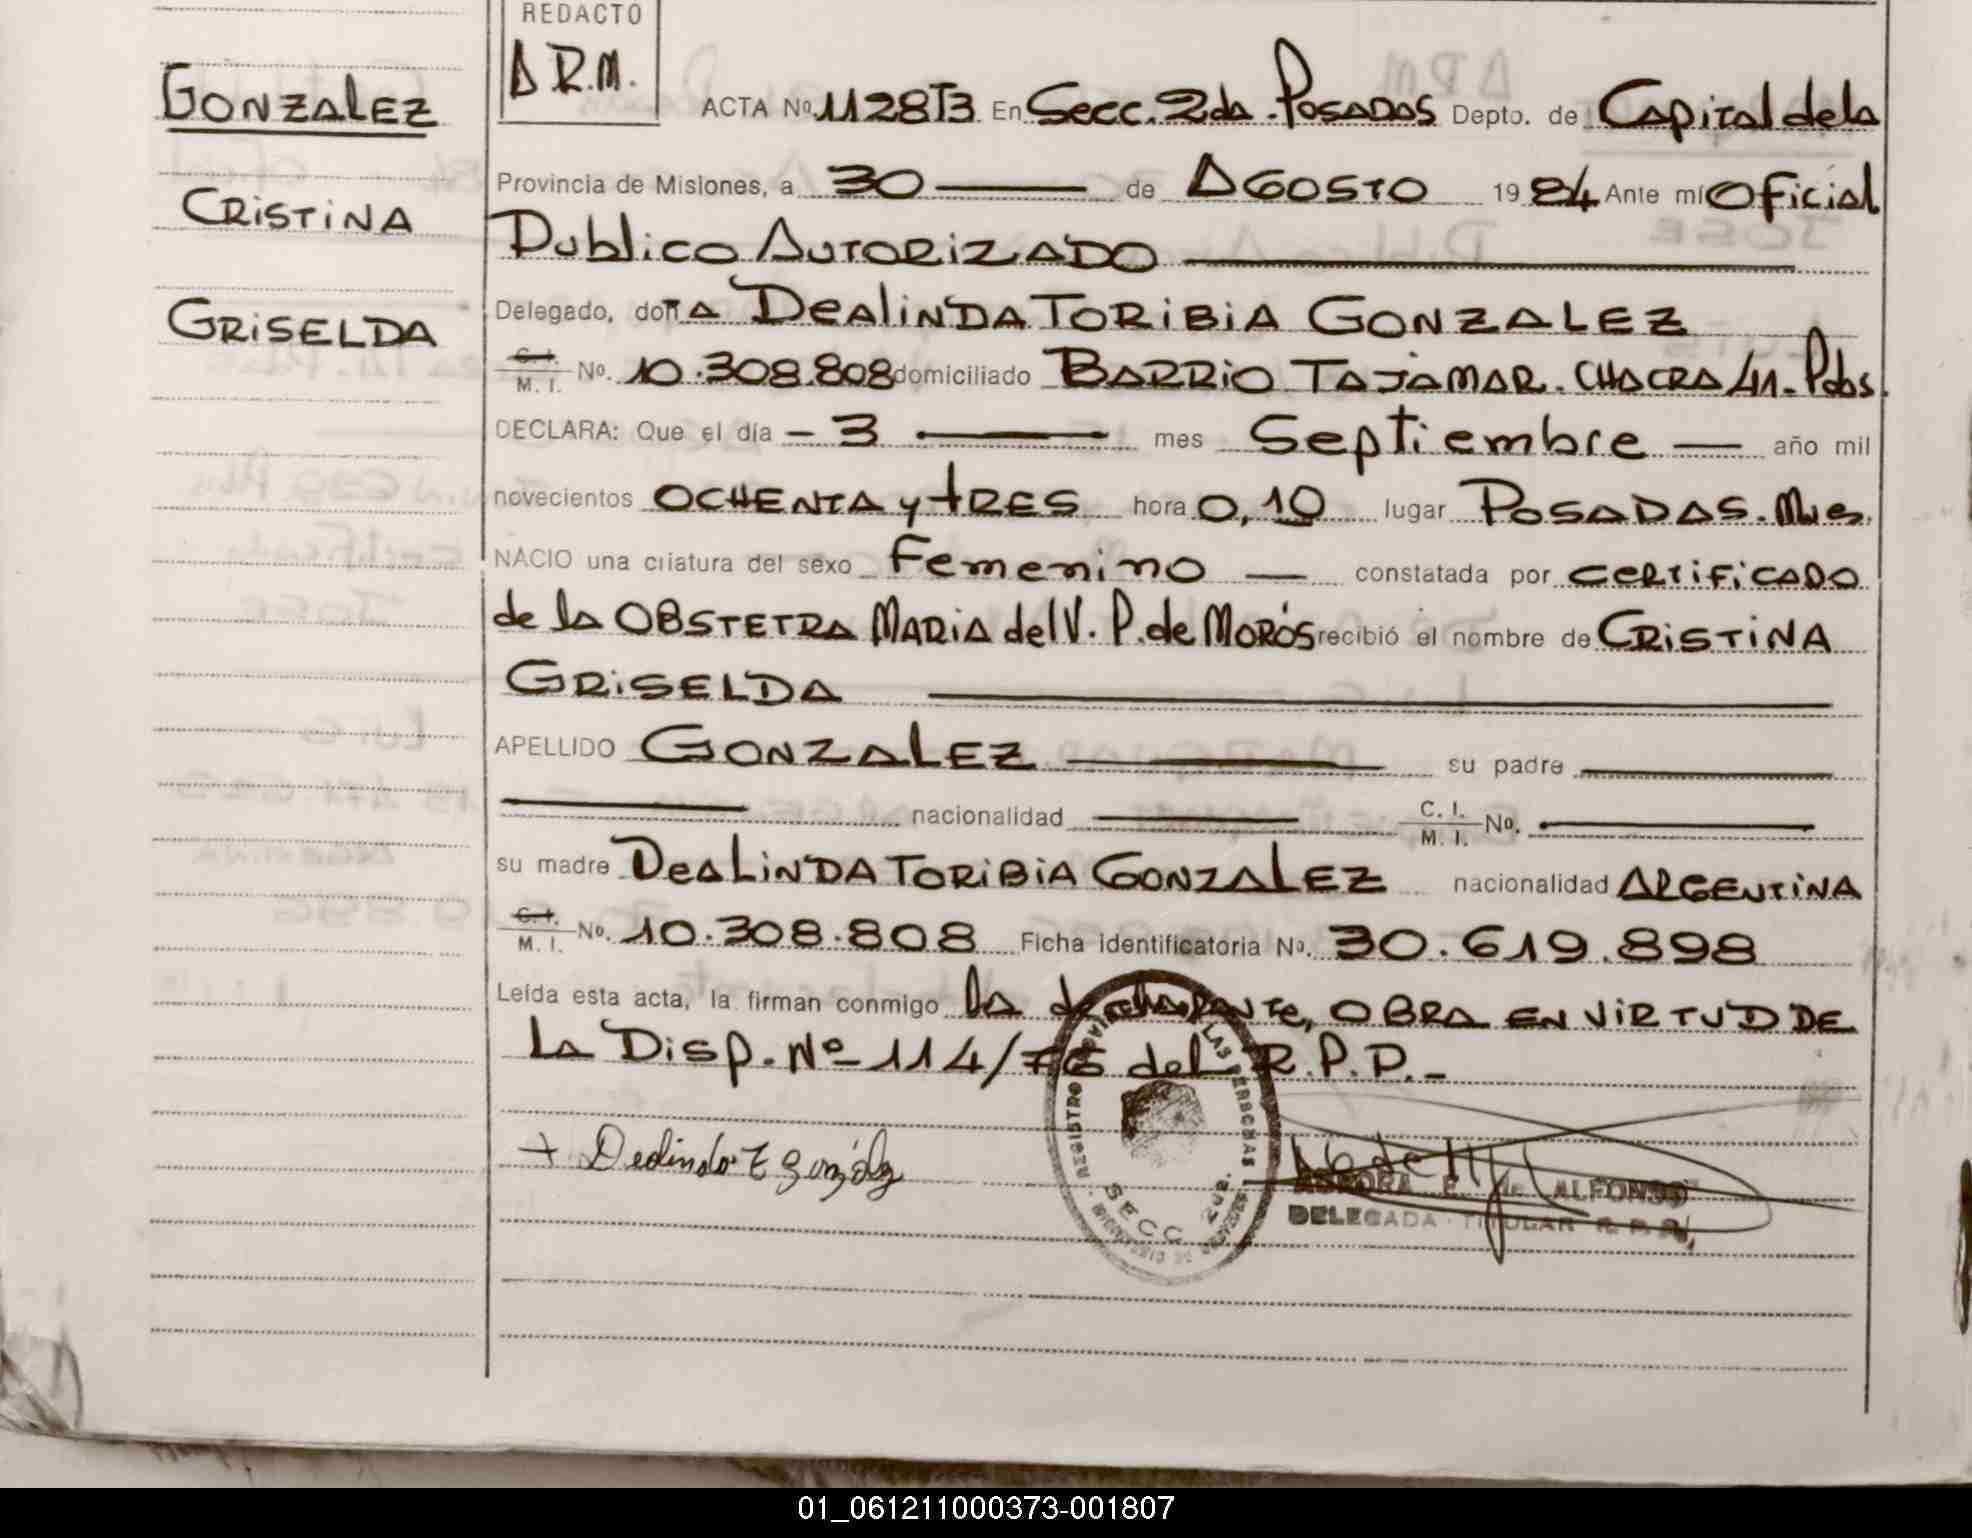 REDACTO
D.R.M.
GONZALEZ
CRISTINA
GRISELDA
ACTA Nº 1128T3 En Secc. 2da. POSADAS Depto. de Capital de la
Provincia de Misiones, a 30 de AGOSTO 1984 Ante mí Oficial
Publico AUTORIZADO
Delegado, doña DEALINDA TORIBIA GONZALEZ
C. I. M. I. No. 10.308.808 domiciliado BARRIO TAJAMAR. CHACRA 41. Pdas.
DECLARA: Que el día - 3 mes Septiembre año mil
novecientos OCHENTA y TRES hora 0,10 lugar POSADAS. Mis.
NACIO una criatura del sexo Femenino constatada por CERTIFICADO
de la OBSTETRA MARIA del V. P. de MORÓS recibió el nombre de CRISTINA
GRISELDA
APELLIDO GONZALEZ su padre
nacionalidad C. I. M. I. No.
su madre DEALINDA TORIBIA GONZALEZ nacionalidad ARGENTINA
C. I. M. I. No. 10.308.808 Ficha identificatoria No. 30.619.898
Leída esta acta, la firman conmigo la declarante, OBRA EN VIRTUD DE
LA Disp. Nº 114/76 del R.P.P.-
+ Dedinda T gonzález
REGISTRO LAS PERSONAS SECC. 2da.
AURORA E. de ALFONSO
DELEGADA TITULAR R. P. P.
01_061211000373-001807